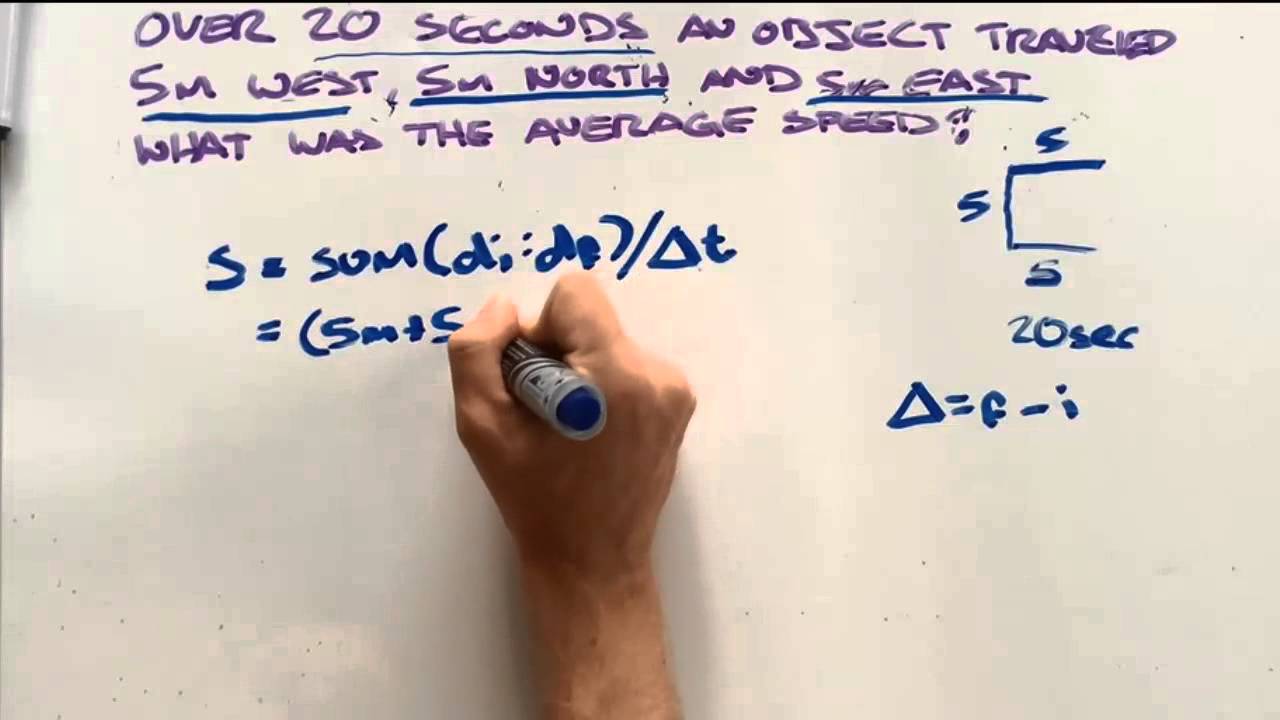 OVER 20 SECONDS AN OBJECT TRAVELED
5M WEST, 5M NORTH AND 5M EAST
WHAT WAS THE AVERAGE SPEED?
5
5
5
20sec
Δ=f-i
S = SUM(di:df)/Δt
= (5m+5